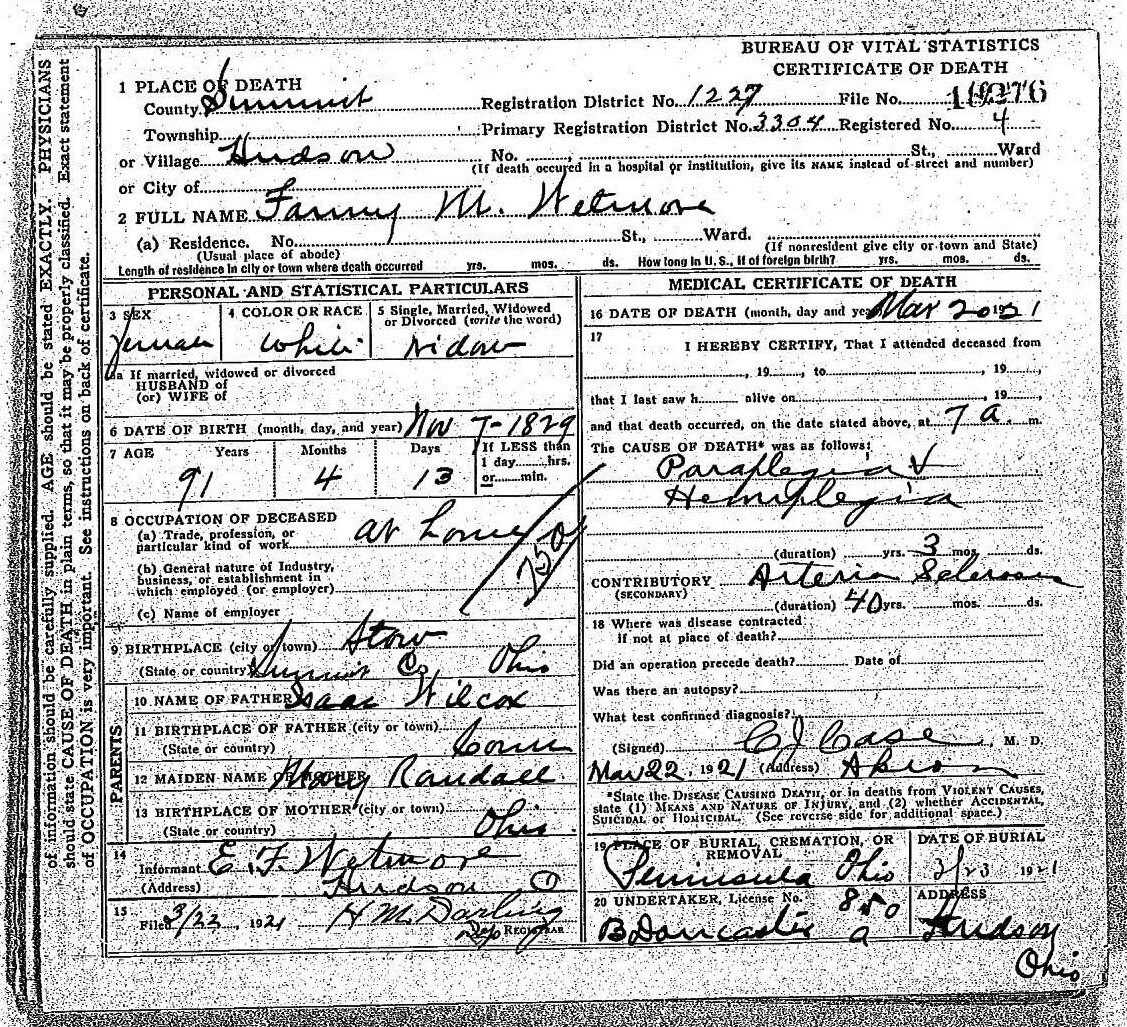 BUREAU OF VITAL STATISTICS
CERTIFICATE OF DEATH
1 PLACE OF DEATH
County Summit Registration District No. 1227 File No.
Township Primary Registration District No. 3304 Registered No. 4
or Village Hudson No. St., Ward
(If death occured in a hospital or institution, give its NAME instead of street and number)
or City of
2 FULL NAME Fanny M. Wetmore
(a) Residence. No. St., Ward.
(Usual place of abode) (If nonresident give city or town and State)
Length of residence in city or town where death occurred yrs. mos. ds. How long in U. S., if of foreign birth? yrs. mos. ds.
PERSONAL AND STATISTICAL PARTICULARS
3 SEX 4 COLOR OR RACE 5 Single, Married, Widowed
or Divorced (write the word)
Female White Widow
5a If married, widowed or divorced
HUSBAND of
(or) WIFE of
6 DATE OF BIRTH (month, day, and year) Nov 7-1829
7 AGE Years Months Days If LESS than
1 day hrs.
or min.
91 4 13
8 OCCUPATION OF DECEASED
(a) Trade, profession, or
particular kind of work at home
(b) General nature of Industry,
business, or establishment in
which employed (or employer)
(c) Name of employer
9 BIRTHPLACE (city or town) Stow
(State or country) Summit Co, Ohio
PARENTS
10 NAME OF FATHER Isaac Wilcox
11 BIRTHPLACE OF FATHER (city or town)
(State or country) Conn
12 MAIDEN NAME OF MOTHER Mary Randall
13 BIRTHPLACE OF MOTHER (city or town)
(State or country) Ohio
14
Informant E. F. Wetmore
(Address) Hudson O
15
Filed 3/23, 1921 H M Darling
Dep REGISTRAR
MEDICAL CERTIFICATE OF DEATH
16 DATE OF DEATH (month, day and year) Mar 20 1921
17
I HEREBY CERTIFY, That I attended deceased from
, 19 , to , 19 ,
that I last saw h alive on , 19 ,
and that death occurred, on the date stated above, at 7 a. m.
The CAUSE OF DEATH* was as follows:
Paraplegia
Hemiplegia
(duration) yrs. 3 mos. ds.
CONTRIBUTORY Arteria Sclerosis
(SECONDARY)
(duration) 40 yrs. mos. ds.
18 Where was disease contracted
if not at place of death?
Did an operation precede death? Date of
Was there an autopsy?
What test confirmed diagnosis?
(Signed) C J Case, M. D.
Mar 22, 1921 (Address) Akron
*State the DISEASE CAUSING DEATH, or in deaths from VIOLENT CAUSES,
state (1) MEANS AND NATURE OF INJURY, and (2) whether ACCIDENTAL,
SUICIDAL or HOMICIDAL. (See reverse side for additional space.)
19 PLACE OF BURIAL, CREMATION, OR
REMOVAL
Peninsula Ohio
DATE OF BURIAL
3/23 1921
20 UNDERTAKER, License No. 850
a
B Doncaster
ADDRESS
Hudson
Ohio
of information should be carefully supplied. AGE should be stated EXACTLY. PHYSICIANS
should state CAUSE OF DEATH in plain terms, so that it may be properly classified. Exact statement
of OCCUPATION is very important. See instructions on back of certificate.